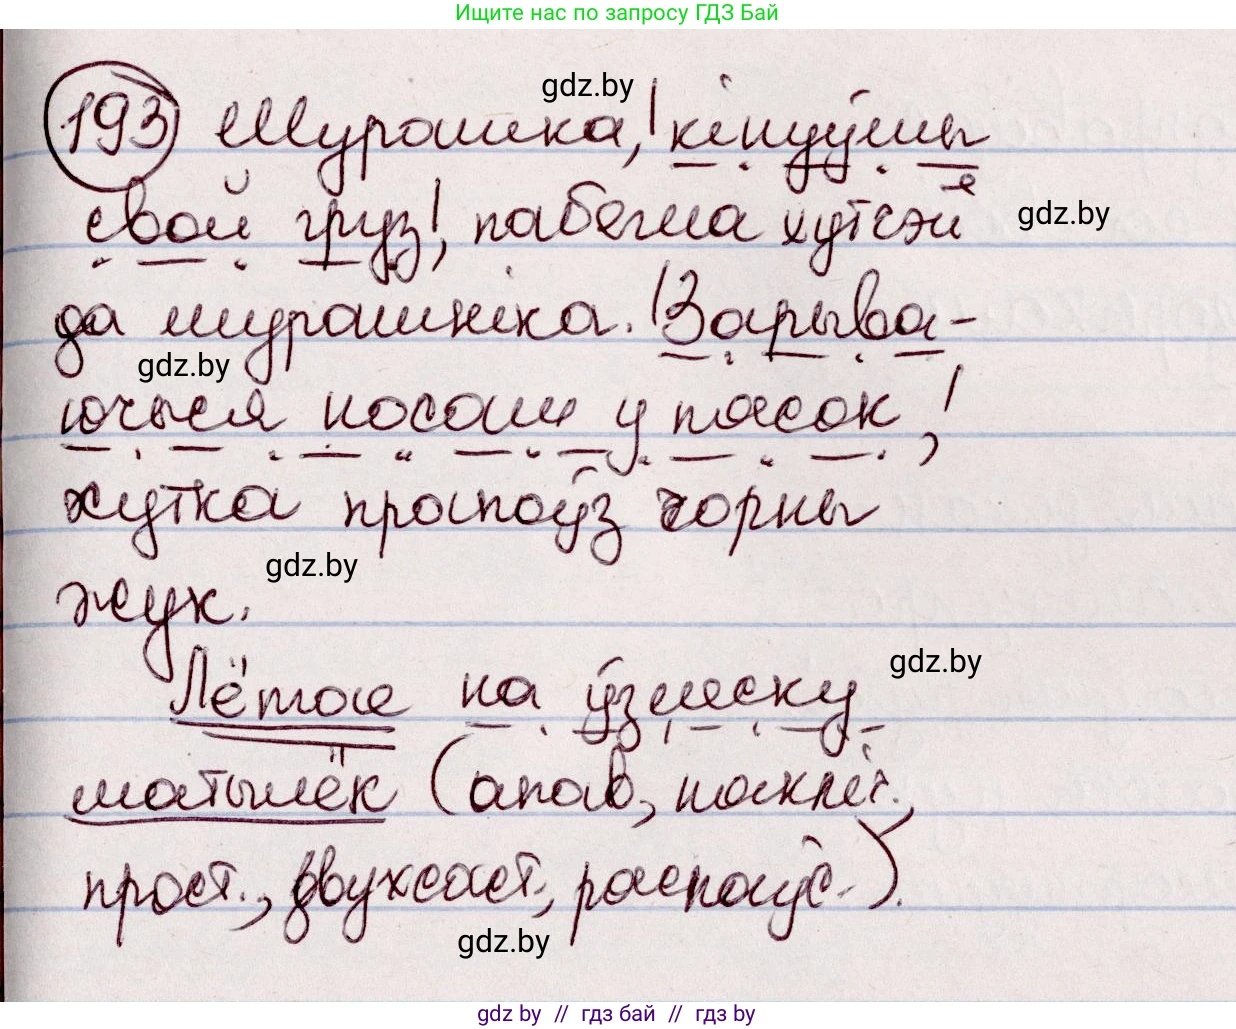 Ищите нас по запросу ГДЗ Бай
193 Мурашка, кінуўшы
gdz.by
свой груз, пабегла хутчэй
gdz.by
да мурашніка. Зарыва-
gdz.by
ючыся носам у пясок,
хутка прапоўз чорны
gdz.by
жук.
gdz.by
Лётае на ўзлеску
матылёк (апав., няклічн.,
прост., двухсаст., распаўс.).
gdz.by
gdz.by // гдз бай // gdz by